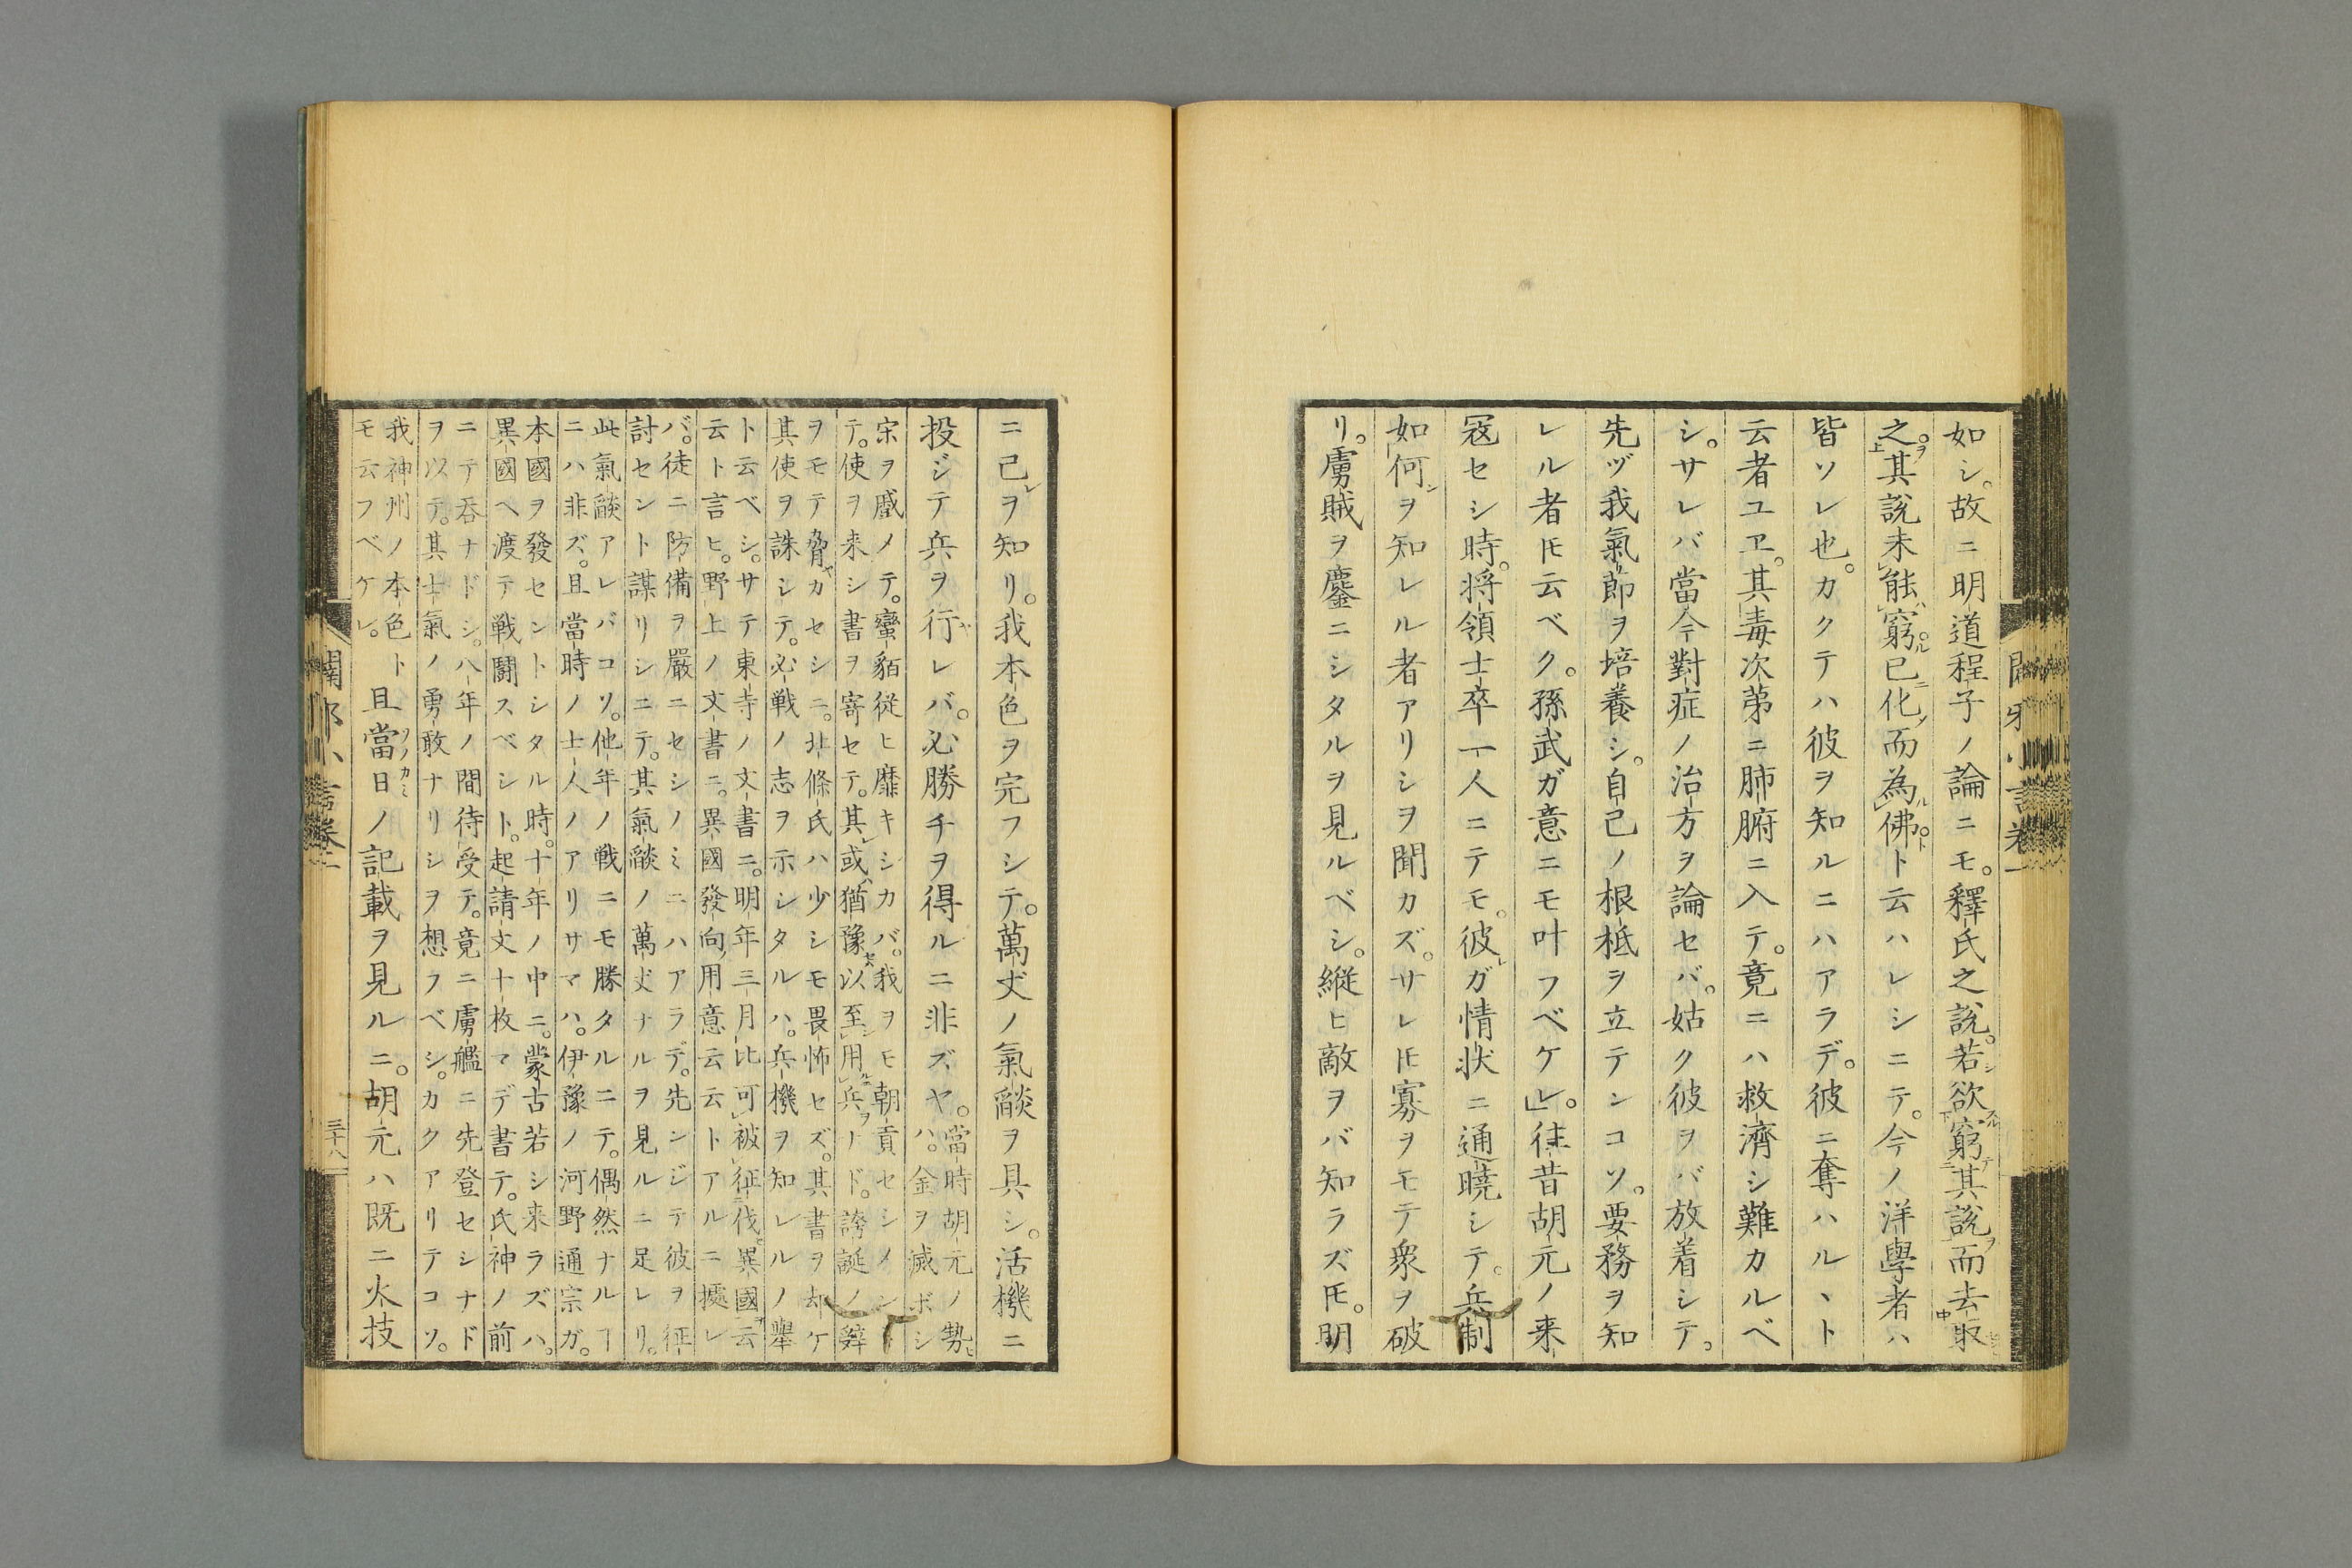 如シ。故ニ明道程子ノ論ニモ。釋氏之説。若欲窮其説而去取
之。其説未能窮已化而為佛ト云ハレシニテ。今ノ洋學者ハ
皆ソレ也。カクテハ彼ヲ知ルニハアラデ。彼ニ奪ハル丶ト
云者ユヱ。其毒次第ニ肺腑ニ入テ。竟ニハ救濟シ難カルベ
シ。サレバ當今對症ノ治方ヲ論セバ。姑ク彼ヲバ放着シテ。
先ヅ我氣節ヲ培養シ。自己ノ根柢ヲ立テンコソ。要務ヲ知
レル者𪜈云ベク。孫武ガ意ニモ叶フベケレ。往昔胡元ノ来
寇セシ時。将領士卒一人ニテモ。彼ガ情状ニ通曉シテ。兵制
如何ヲ知レル者アリシヲ聞カズ。サレ𪜈寡ヲモテ衆ヲ破
リ。虜賊ヲ鏖ニシタルヲ見ルベシ。縦ヒ敵ヲバ知ラズ𪜈。明
ニ己ヲ知リ。我本色ヲ完フシテ。萬丈ノ氣燄ヲ具シ。活機ニ
投ジテ兵ヲ行レバ。必勝チヲ得ルニ非ズヤ。當時胡元ノ勢ヒ
ハ。金ヲ滅ボシ
宋ヲ蹙メテ。蠻貊従ヒ靡キシカバ。我ヲモ朝貢セシメント
テ。使ヲ来シ書ヲ寄セテ。其或猶豫以至用兵ナド。誇誕ノ辞
ヲモテ脅カセシニ。北條氏ハ少シモ畏怖セズ。其書ヲ却ケ
其使ヲ誅シテ。必戦ノ志ヲ示シタルハ。兵機ヲ知レルノ舉
ト云ベシ。サテ東寺ノ文書ニ。明年三月比可被征伐異國云
云ト言ヒ。野上ノ文書ニ。異國發向用意云云トアルニ據レ
バ。徒ニ防備ヲ嚴ニセシノミニハアラデ。先ンジテ彼ヲ征
討セント謀リシニテ。其氣燄ノ萬丈ナルヲ見ルニ足レリ。
此氣燄アレバコソ。他年ノ戦ニモ勝タルニテ。偶然ナルヿ
ニハ非ズ。且當時ノ士人ノアリサマハ。伊豫ノ河野通宗ガ。
本國ヲ發セントシタル時。十年ノ中ニ。蒙古若シ来ラズハ。
異國ヘ渡テ戦鬪スベシト。起請文十枚マデ書テ。氏神ノ前
ニテ呑ナドシ。八年ノ間待受テ。竟ニ虜艦ニ先登セシナド
ヲ以テ。其士氣ノ勇敢ナリシヲ想フベシ。カクアリテコソ。
我神州ノ本色ト
モ云フベケレ。
且當日ノ記載ヲ見ルニ。胡元ハ既ニ火技
三十八